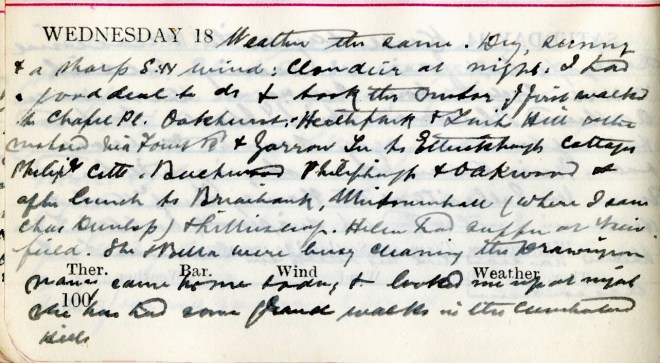 WEDNESDAY 18 Weather the same. Dry, sunny
& a sharp S.W wind: Cloudier at night. I had
a good deal to do & took the motor, I first walked
to Chapel Pl. Oakhurst, Heathpark & Hill after
motored via & Yarrow to Ettrickhaugh Cottages
Philip Cott. Buckwood Philiphaugh & Oakwood &
after lunch to Briarbank, (where I saw
Chas Dunlop) & Helen had supper at
field. She & Bella were busy cleaning the Drawingrm
Ther. Bar. Wind Weather
came home today & looked me up at night
100
she has had some grand walks in the Cumberland
hills